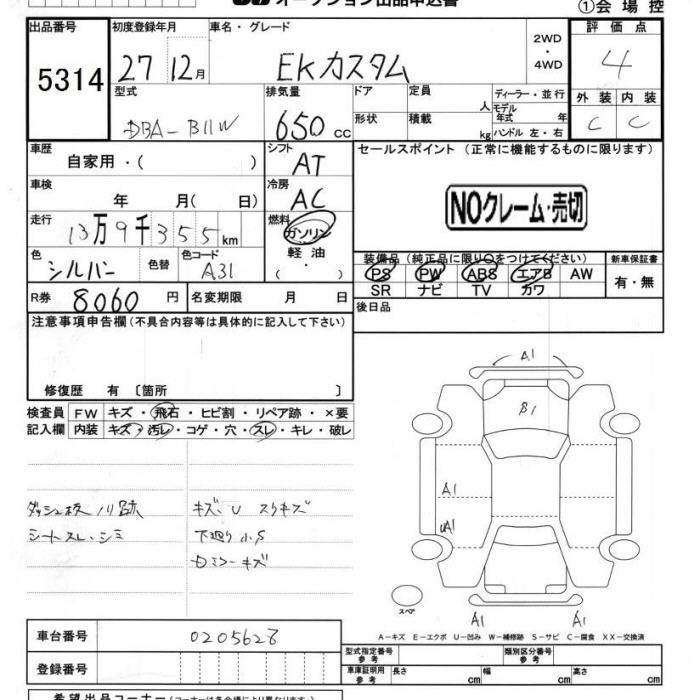 オークション出品申込書
①会場控
出品番号 初度登録年月 車名・グレード 評価点
5314 27 12月 EKカスタム 2WD ・ 4WD 4
型式 排気量 ドア 定員 人 ディーラー・並行 外装 内装
DBA-B11W 650 cc 形状 積載 kg モデル年式 年 ハンドル 左・右 C C
車歴 シフト セールスポイント (正常に機能するものに限ります)
自家用・( ) AT
車検 冷房
年 月( 日) AC NOクレーム・売切
走行 燃料
13万9千355km ガソリン
色 色替 色コード 軽油 装備品(純正品に限り○をつけてください) 新車保証書
シルバー A31 ・( ) PS PW ABS エアB AW 有・無
SR ナビ TV カワ
R券 8060 円 名変期限 月 日
後日品
注意事項申告欄(不具合内容等は具体的に記入して下さい)
修復歴 有 〔箇所 〕
検査員 FW キズ・飛石・ヒビ割・リペア跡・×要
記入欄 内装 キズ・汚レ・コゲ・穴・スレ・キレ・破レ
A1
B1
A1
ダッシュ板ノリ跡 キズ、U スリキズ
シートスレ・シミ 下廻り小S
ミラーキズ
スペア
A1 A1
A−キズ E−エクボ U−凹み W−補修跡 S−サビ C−腐食 XX−交換済
車台番号 0205628
登録番号
型式指定番号 参考 類別区分番号 参考
車庫証明用 参考 長さ cm 幅 cm 高さ cm
希望出品コーナー(コーナーは各会場により異なります)